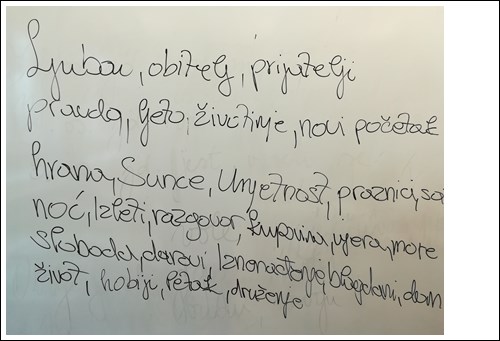 Ljubav, obitelj, prijatelji
pravda, ljeto, životinje, novi početak
hrana, Sunce, Umjetnost, praznici,
noć, Izleti, razgovor, kupovina, vjera, more
sloboda, darovi, Iznenađenje, blagdani, dom
život, hobiji, petak, druženje